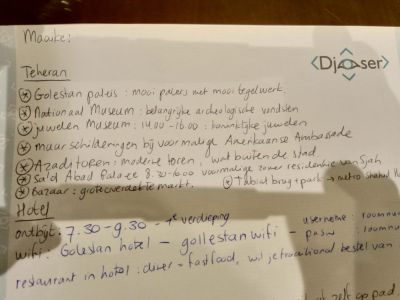 Maaike:
Djoser
Teheran
Golestan paleis : mooi paleis met mooi tegelwerk.
Nationaal Museum : belangrijke archeologische vondsten
juwelen Museum : 14.00 - 16.00 : koninklijke juwelen
muurschilderingen bij voormalige Amerikaanse Ambassade
Azadi toren : moderne toren, wat buiten de stad
Sa'd Abad Palace 8.30-16.00 voormalige zomer residentie van Sjah
Bazaar : grote overdekte markt. Tabiat brug + park → metro Shahid
Hotel
ontbijt : 7.30 - 9.30 - 1e verdieping
username : roomnu
wifi : Golestan hotel - gollestanwifi - pasw : roomnu
restaurant in hotel : diner = fastfood, wil je traditional bestel van
zelf op pad